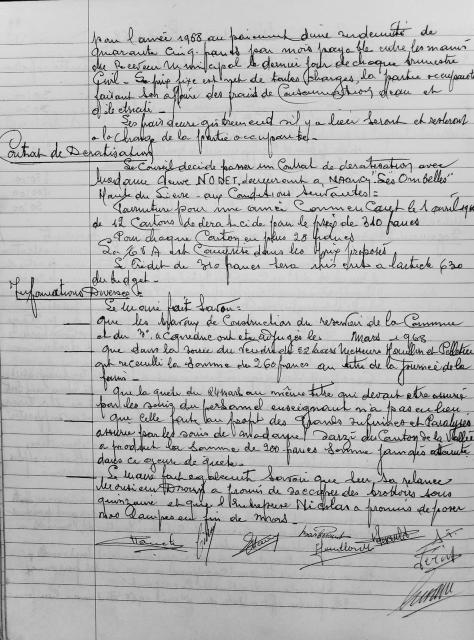 pour l'année 1968 au paiement d'une indemnité de
quarante cinq francs par mois payable entre les mains
du Receveur Municipal le dernier jour de chaque trimestre
Civil - Ce prix fixe est net de toutes charges, la partie occupante
faisant son affaire des frais de Consommation d'eau et
d'électricité -
Les frais d'enregistrement s'il y a lieu seront et resteront
à la charge de la partie occupante -
Contrat de Dératisation
Le Conseil décide passer un Contrat de dératisation avec
Madame Veuve NODET, demeurant à "Les Ombelles"
aux Conditions suivantes =
Fourniture pour une année Commençant le 1 avril
de 12 Cartons pour le prix de 310 francs
Pour chaque Carton en plus 28 francs
La T V A est Comprise dans les prix proposés
Le Crédit de 310 francs sera à l'article 630
du budget -
Informations Diverses =
Le maire fait savoir =
que les travaux de Construction du réservoir de la Commune
et du ont été adjugés le mars 1968
que dans la soirée du Vendredi Messieurs et Pelletier
ont recueilli la somme de 260 francs au titre de la journée de la
faim -
Que la quête du 24 mars au même titre que devait être assurée
par les soins du personnel enseignant n'a pas eu lieu
Que celle faite au profit des Grands Infirmes et Paralysés
assurée par les soins de madame du Canton de la Vallée
a produit la somme de 200 francs somme jamais atteinte
dans ce genre de quête -
Le maire fait également savoir que sur sa relance
Monsieur a promis de des sous
quinzaine et que l'Entreprise Nicolas a promis de poser
nos lampes en fin de Mars -